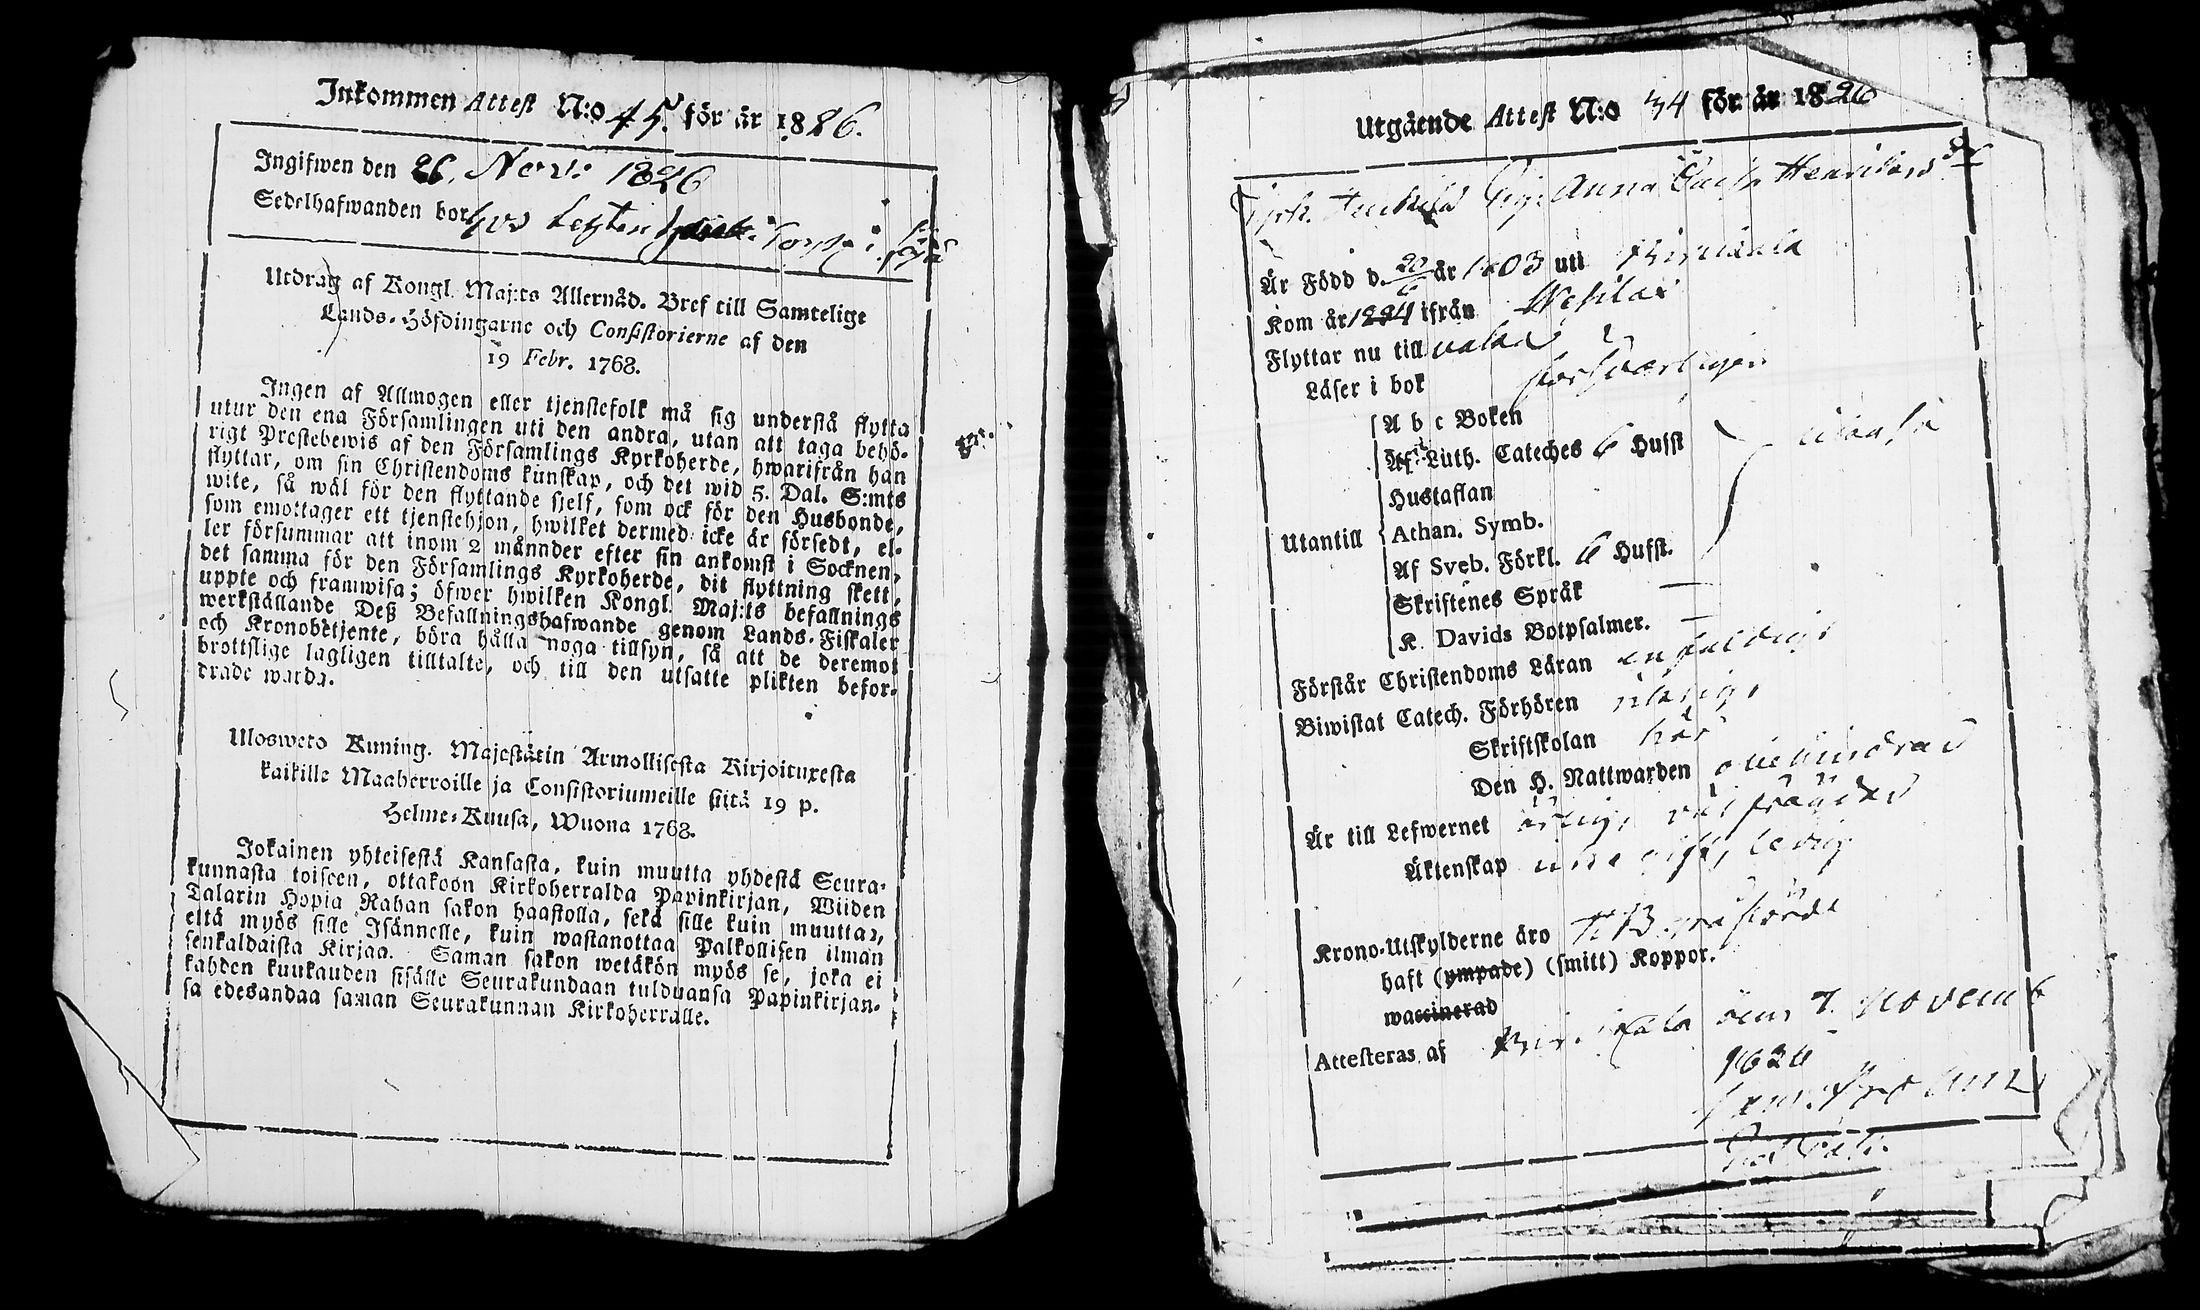 Inkommen Attest N:o 45. för år 1826.
Ingifwen den 26. Nov: 1826
Sedelhafwanden bor hos
Utdrag af Kongl. Maj:ts Allernåd. Bref till Samtelige
Lands-Höfdingarne och Consistorierne af den
19 Febr. 1768.
Ingen af Allmogen eller tjenstefolk må sig understå flytta
utur den ena Församlingen uti den andra, utan att taga behö-
rigt Prestebewis af den Församlings Kyrkoherde, hwarifrån han
flyttar, om sin Christendoms kunskap, och det wid 5. Dal. S:mts
wite, så wäl för den flyttande sjelf, som ock för den Husbonde,
som emottager ett tjenstehjon, hwilket dermed icke är försedt, el-
ler försummar att inom 2 månnder efter sin ankomst i Socknen,
det samma för den Församlings Kyrkoherde, dit flyttning skett,
uppte och framwisa; öfwer hwilken Kongl. Maj:ts befallnings
werkställande Deß Befallningshafwande genom Lands-Fiskaler
och Kronobetjente, böra hålla noga tillsyn, så att de deremot
brottslige lagligen tilltalte, och till den utsatte plikten befor-
drade warda.
Ulosweto Kuning. Majestätin Armollisesta Kirjoituxesta
kaikille Maaherroille ja Consistoriumeille siitä 19 p.
Helme-Kuusa, Wuona 1768.
Jokainen yhteisestä Kansasta, kuin muutta yhdestä Seura-
kunnasta toiseen, ottakoon Kirkoherralda Papinkirjan, Wiiden
Talarin Hopia Rahan sakon haastolla, sekä sille kuin muuttaa,
että myös sille Isännelle, kuin wastanottaa Palkollisen ilman
senkaldaista Kirjaa. Saman sakon wetäkön myös se, joka ei
kahden kuukauden sisälle Seurakundaan tulduansa Papinkirjan-
sa edesandaa saman Seurakunnan Kirkoherralle.
Utgående Attest N:o 34 för år 1826
Pig. Anna Henriksd:r
Är Född d. 20/6 år 1803 uti Birckala
Kom år 1824 ifrån Wesilax
Flyttar nu till
Läser i bok försvarligen
A b c Boken
Af Luth. Cateches 6 Hufst
Hustaflan
Utantill
Athan. Symb.
Af Sveb. Förkl. 6 Hufst.
Skriftenes Språk —
K. Davids Botpsalmer. —
Förstår Christendoms Läran enfaldigt
Biwistat Catech. Förhören riktigt
Skriftskolan här
Den H. Nattwarden obehindrad
Är till Lefwernet ärlig, välfrägdad
Äktenskap icke gift, ledig
Krono-Utskylderne äro påförde
haft (ympade) (smitt) Koppor.
waccinerad
Attesteras af Birckala den 7. Novemb
1826